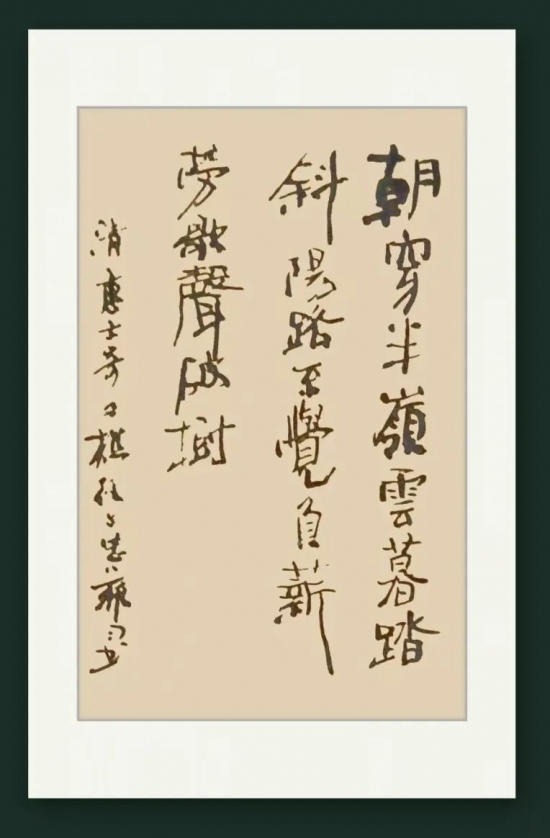 朝穿半嶺雲暮踏
斜陽路不覺負薪
勞歌聲破樹
清惠士奇